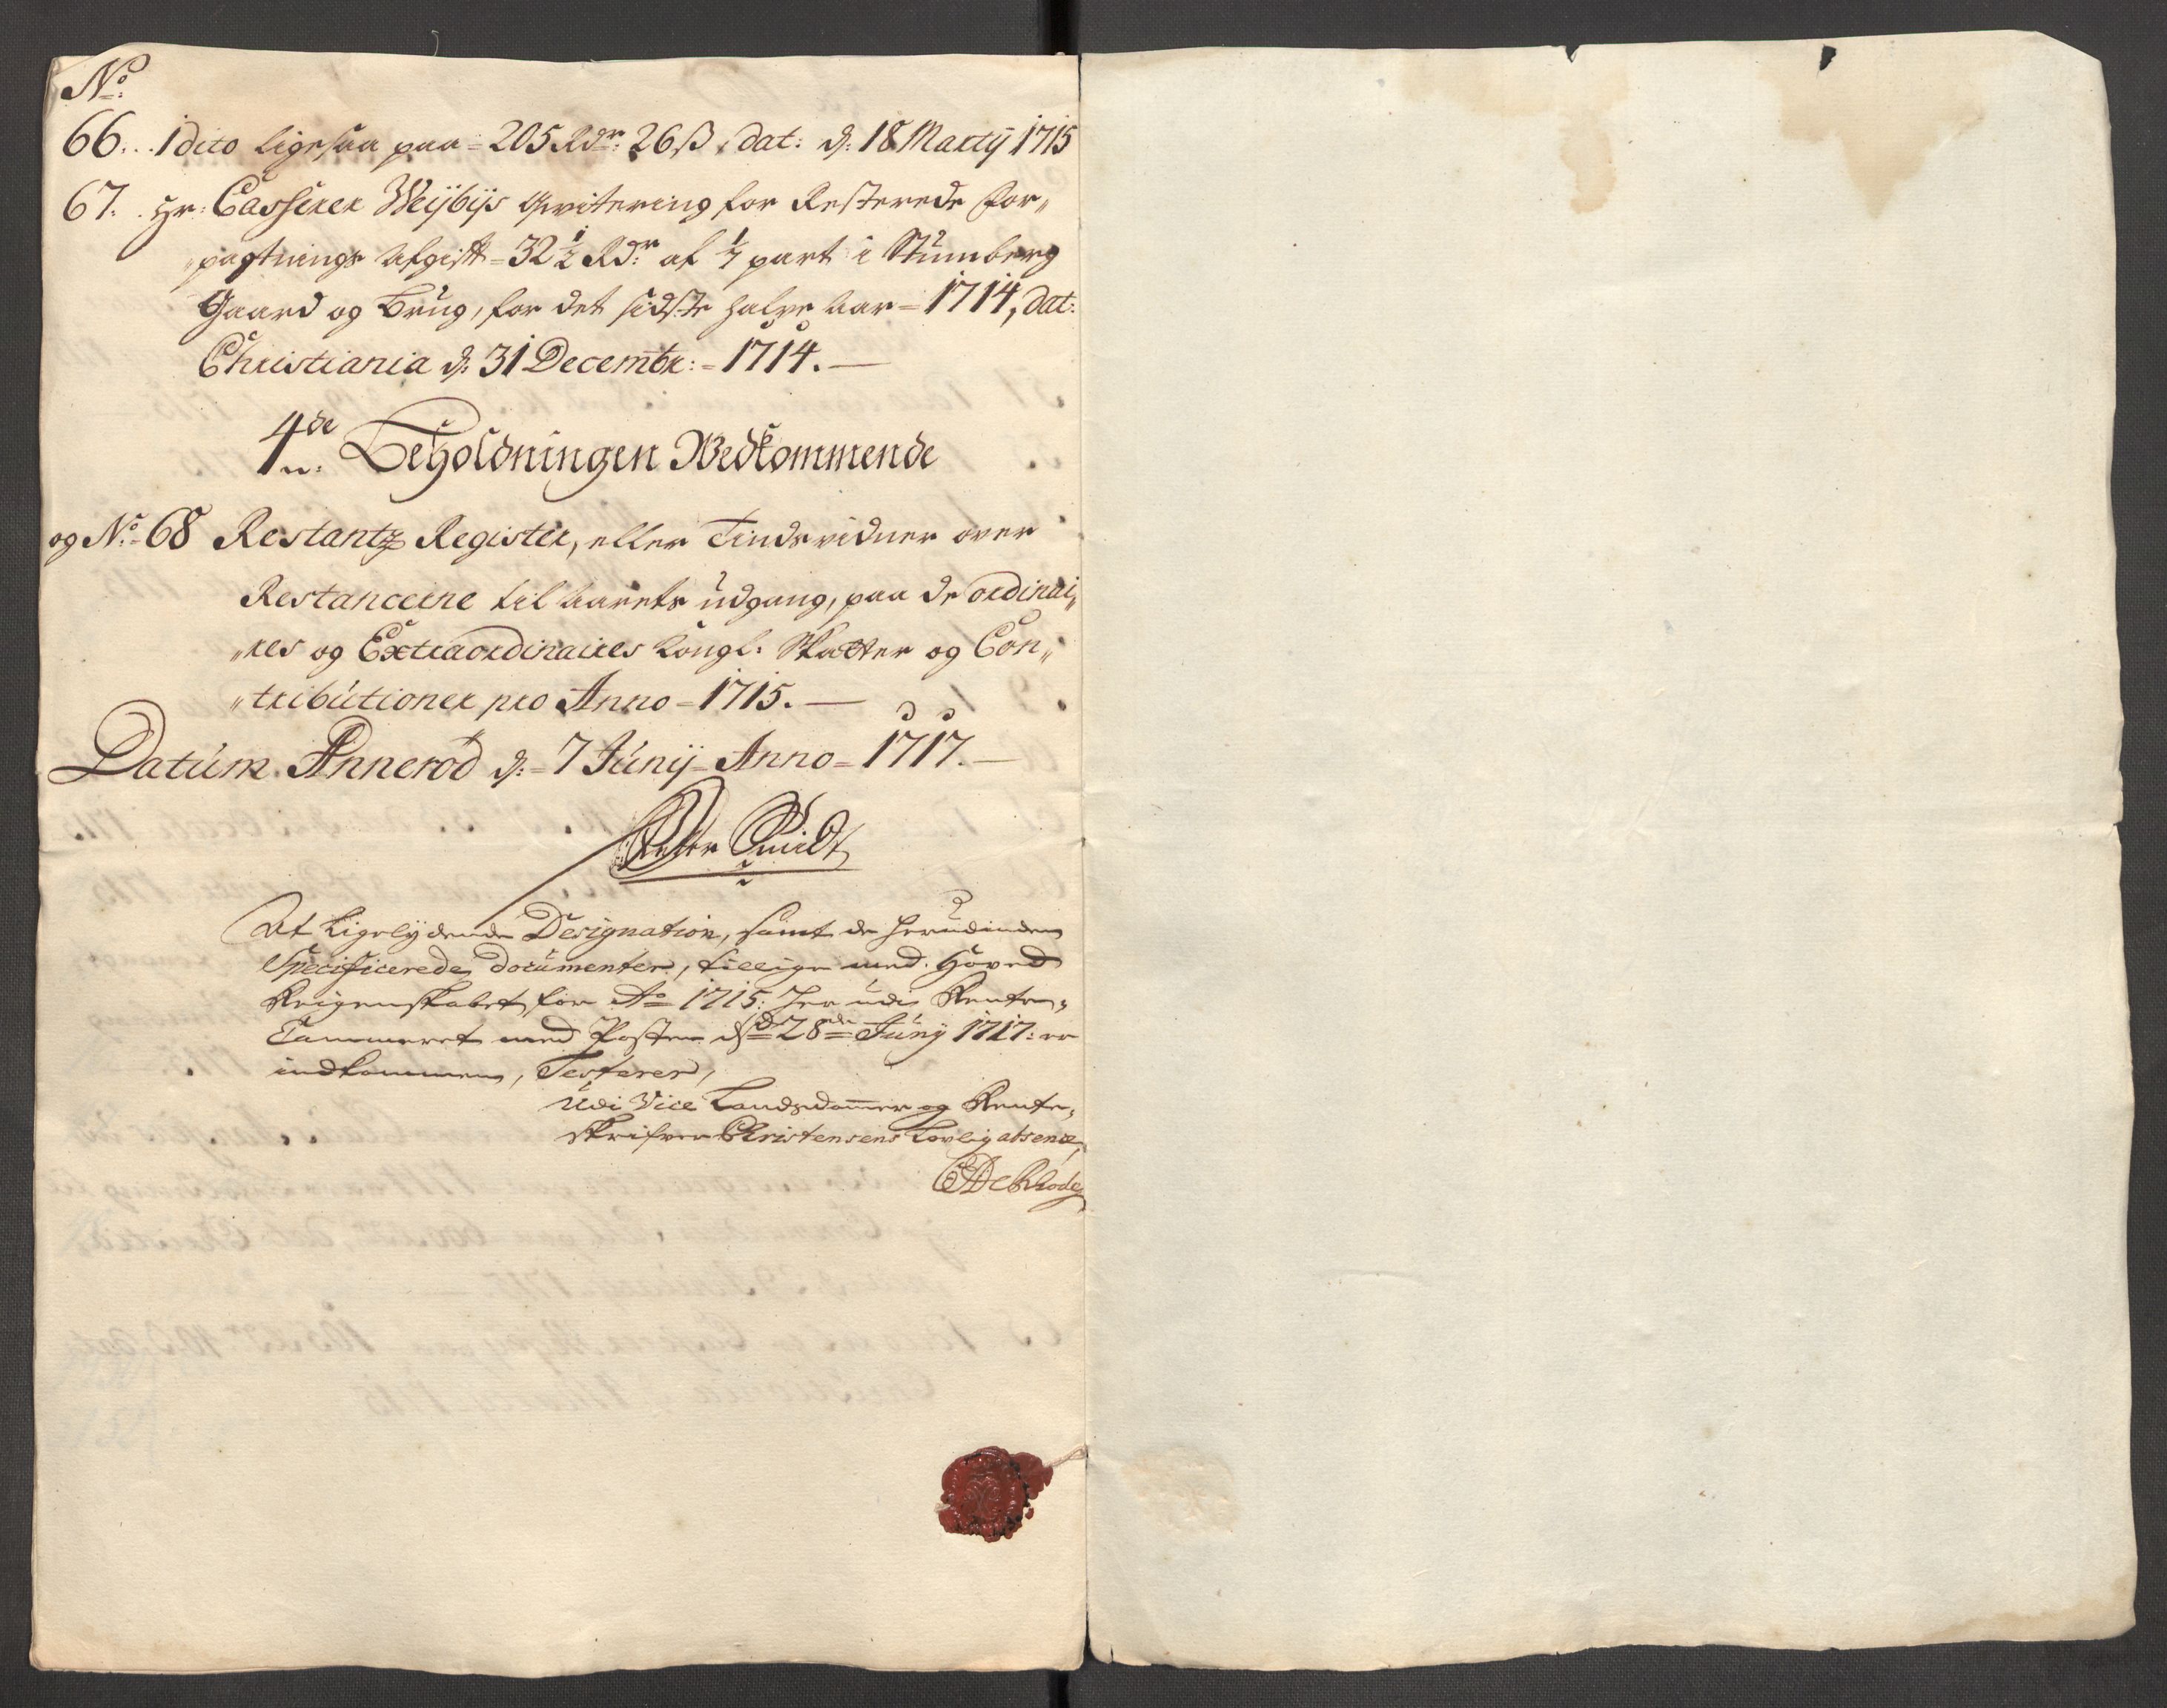 No.
66. 1 dito ligesaa paa = 205 Rdr: 26 ß, dat: d: 18 Martij 1715
67. Hr: Casserer Weijbijs Qvitering for Resterede for„
„pagtnings Afgift = 32½ Rdr af ¼ part i Stumberg
Gaard og Brug, for det sidste halve Aar = 1714, dat:
Christiania d: 31 Decembr: = 1714. —
4de Beholdningen Wedkommende
og No. 68 Restantz Register, eller Tindsvidner over
Restancerne til Aarets udgang, paa de ordinai„
„res og Extraordinaires Kongl: Skatter og Con„
„tributioner pro Anno = 1715. —
Datum Annerød d: = 7 Junij = Anno = 1717. —
Peter Smidt
At Ligelydende Designation, samt de herudinden
Specificerede documenter, tillige med Hoved
Reigenskabet for Ao 1715: her udi Rente„
Cammeret med Posten d: 28de Junij 1717: er
indkommen, Testerer,
Udi Vice Landsdommer og Rente„
skrifver Christensens Lovlig absence,
De Rhode